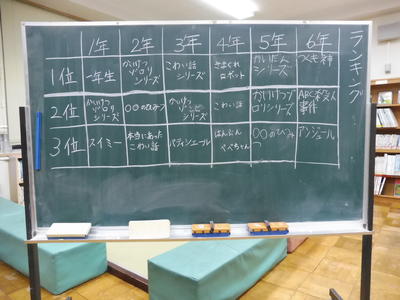 ランキング
1年 2年 3年 4年 5年 6年
1位 一年生 かいけつゾロリシリーズ こわい話シリーズ きまぐれロボット かいだんシリーズ つくも神
2位 かいけつゾロリシリーズ ○○のひみつ かいけつゾロリシリーズ こわい話 かいけつゾロリシリーズ ABC殺人事件
3位 スイミー 本当にあったこわい話 パティシエ はんぶんぺぺちゃん ○○のひみつ アンジュール